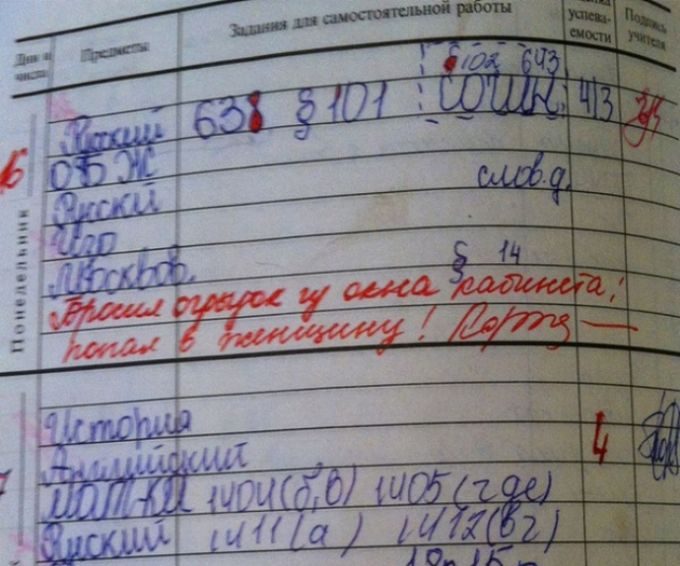 Дни и числа Предметы Задания для самостоятельной работы успева-емости Подпись учителя
§102 643
Русский 638 §101 СОЧИН. 4/3
16
ОБЖ
Русски слов.д.
Изо
Москвов. § 14
Понедельник
Бросил огрызок из окна кабинета,
попал в женщину!
История
Английский 4
МАТ-КА 1404(б,в) 1405(где)
Русский 1411(а) 1412(вг)